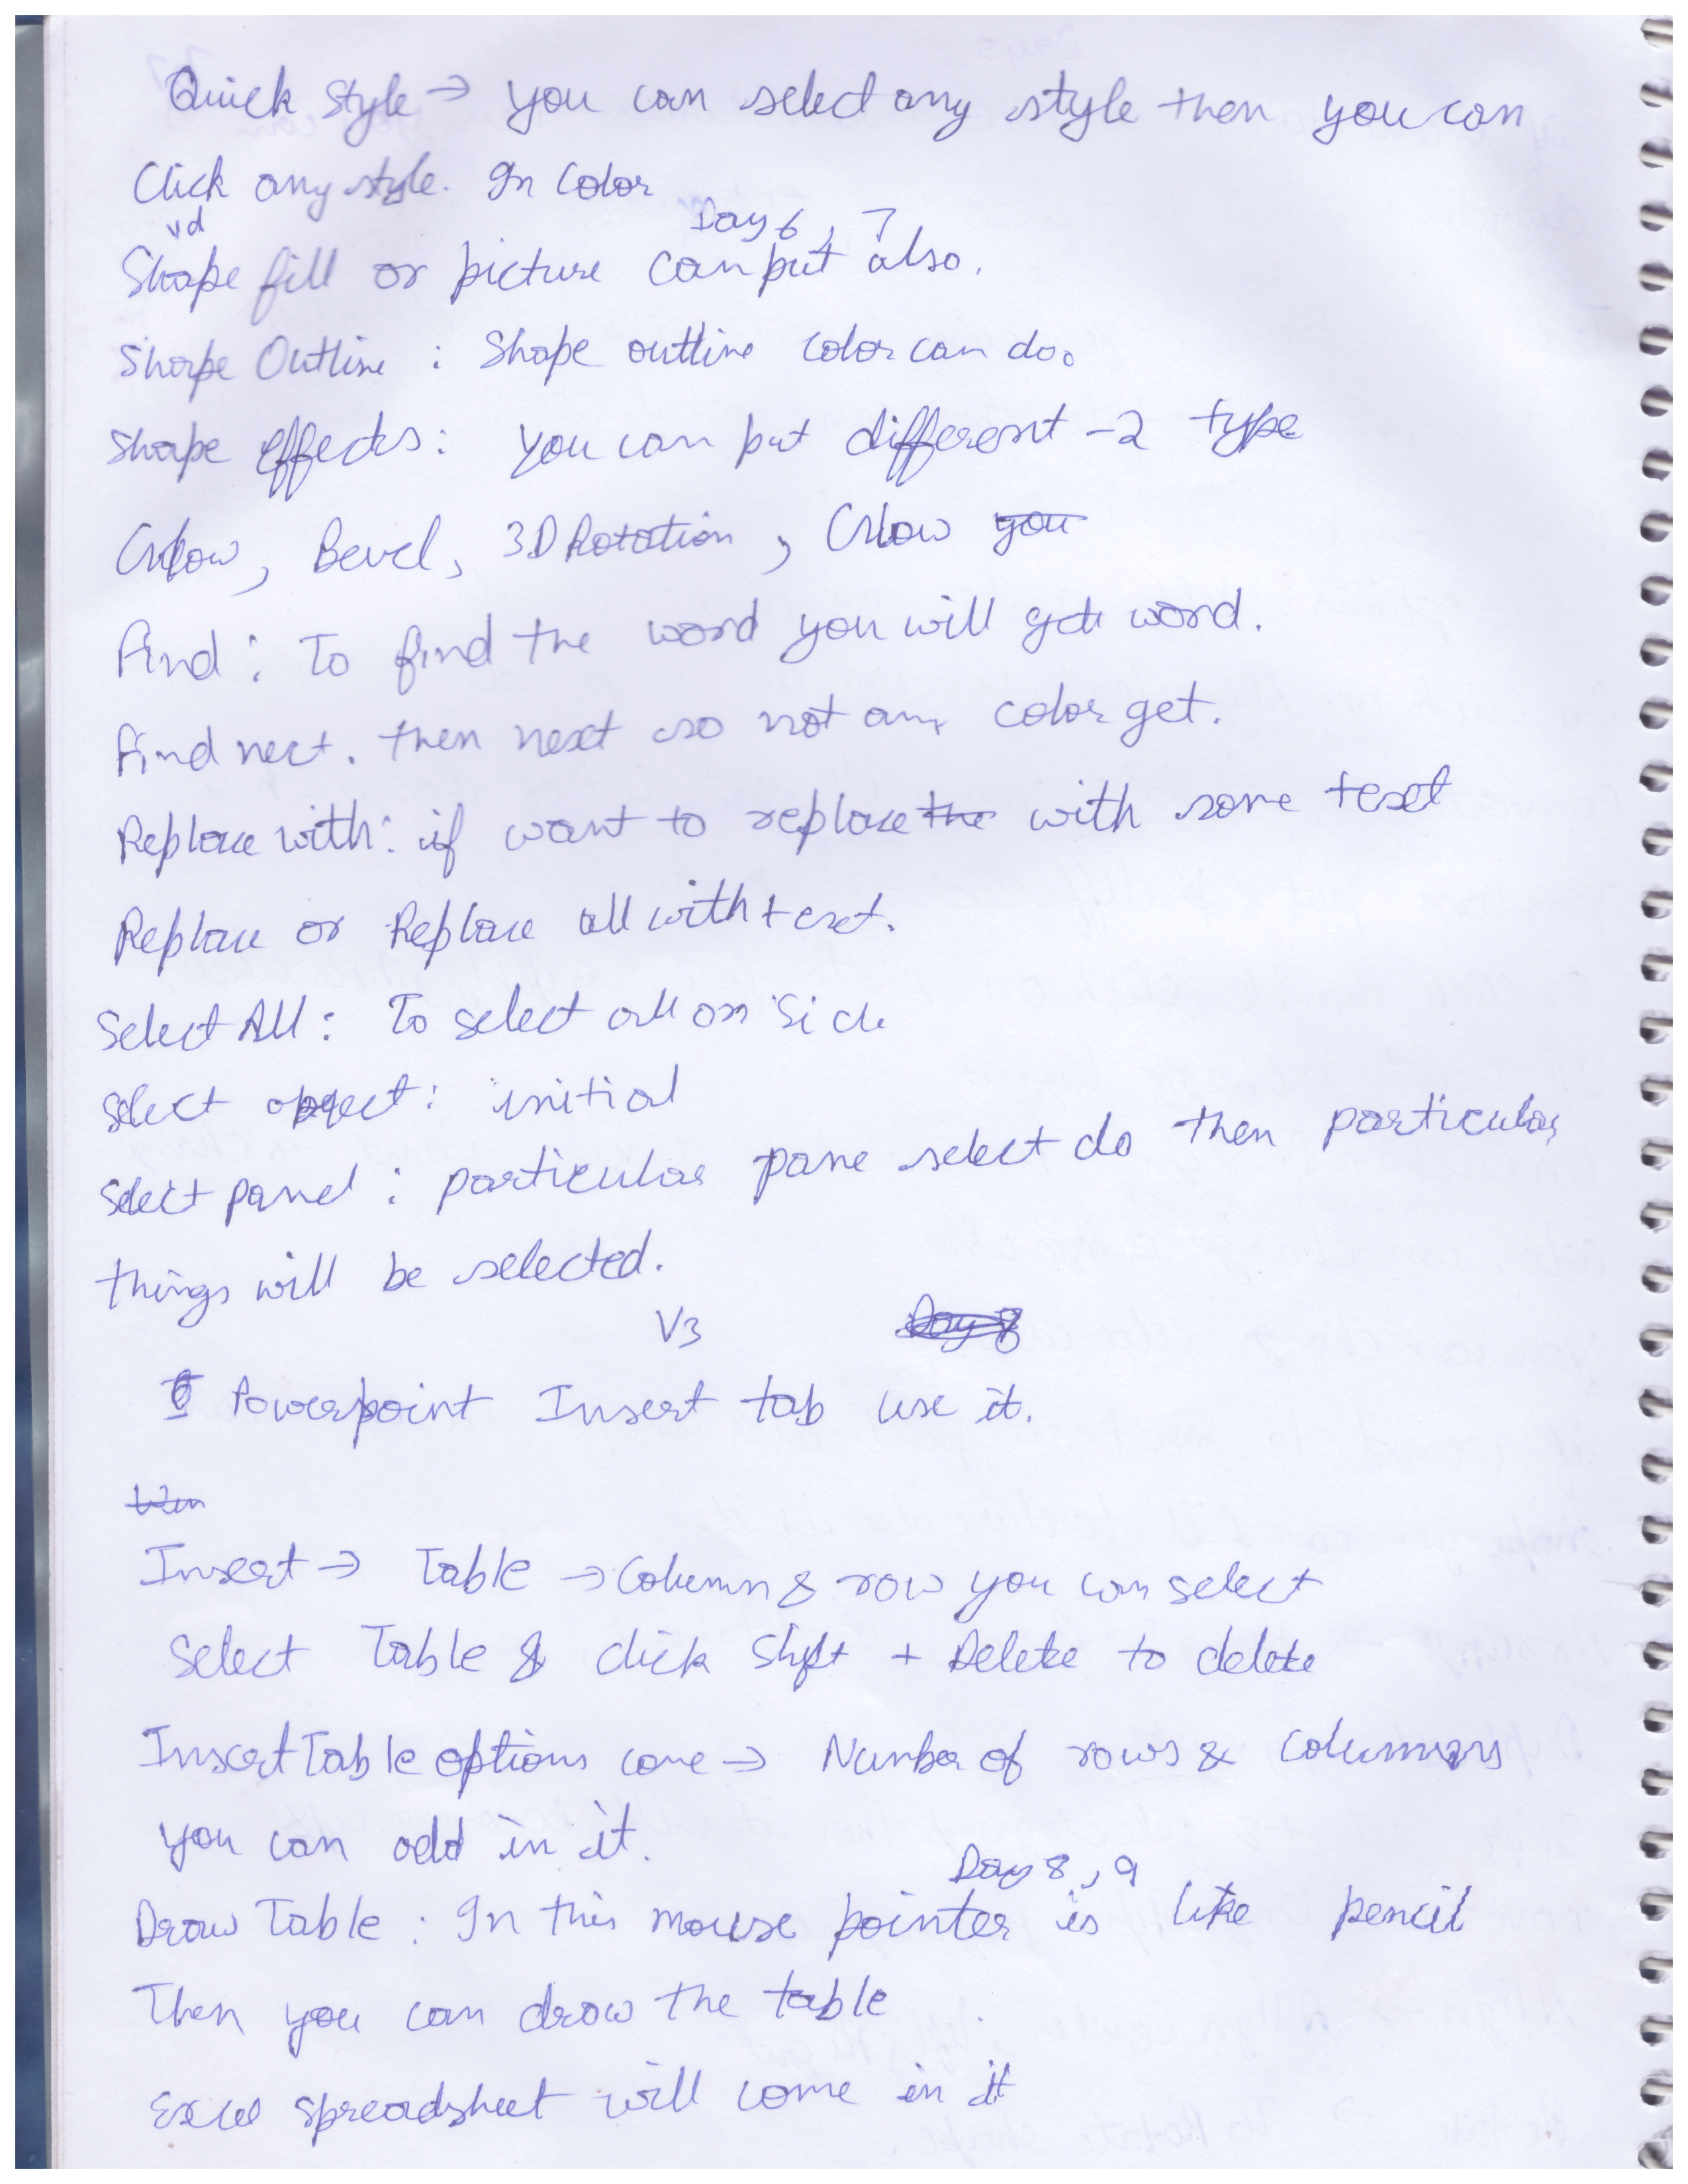 Quick Style → you can select any style then you can
Click any style. In Color
vd Day 6, 7
Shape fill or picture can put also.
Shape Outline : Shape outline color can do.
Shape effects : you can put different -2 type
Glow, Bevel, 3D Rotation, Glow you
Find : To find the word you will get word.
Find nect. then next so not any color get.
Replace with : if want to replace the with some text
Replace or Replace all with text.
Select All : To select all on Side
Select object : initial
Select panel : particular pane select do then particular
things will be selected.
V3 Day 8
Powerpoint Insert tab use it.
Insert → Table → Column & row you can select
Select Table & click Shift + Delete to delete
Insert Table options come → Number of rows & columns
you can add in it.
Day 8, 9
Draw Table : In this mouse pointer is like pencil
Then you can draw the table
Excel spreadsheet will come in it